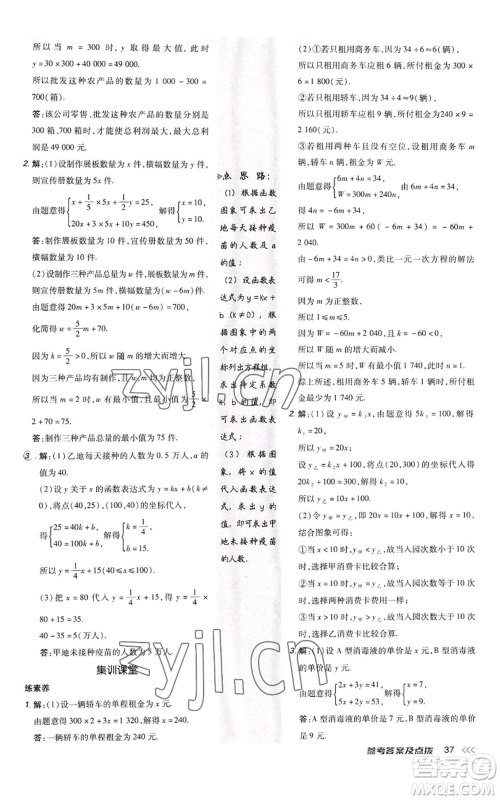 所以当 m = 300 时, y 取得最大值, 此时 y =
30 × 300 + 40 000 = 49 000.
所以批发这种农产品的数量为 1 000 - 300 =
700(箱).
答:该公司零售、批发这种农产品的数量分别是
300 箱,700 箱时,总利润最大,最大总利润是
49 000 元.
2. 解:(1)设制作展板数量为 x 件,横幅数量为 y 件,
则宣传册数量为 5x 件.
由题意得 { x + 1/5 × 5x + 1/2 y = 25, 解得 { x = 10,
20x + 3 × 5x + 10y = 450, y = 10.
答:制作展板数量为 10 件,宣传册数量为 50 件,
横幅数量为 10 件.
(2)设制作三种产品总量为 w 件,展板数量为 m 件,
由题意得 20m + 3 × 5m +
化简得 w = 5/2 m + 70.
因为 5/2 > 0,所以 w 随 m 的增大而增大.
因为三种产品均有制作,且 w,m 均为正整数,
所以当 m = 2 时,w 有最小值,
+ 2 + 70 = 75.
答:制作三种产品总量的最小值为 75 件.
3. 解:(1)乙地每天接种的人数为 0.5 万人,a 的
值为 40.
(2)设 y 关于 x 的函数表达式为 y = kx + b(k ≠
0),将点(40,25),(100,40)的坐标代入,
得 { 25 = 40k + b, 解得 { k = 1/4,
40 = 100k + b, b = 15.
所以 y = 1/4 x + 15(40 ≤ x ≤ 100).
(3)把 x = 80 代入 y = 1/4 x + 15,得 y = 1/4
× 80 + 15 = 35,
40 - 35 = 5(万人).
答:甲地未接种疫苗的人数为 5 万人.
集训课堂
练素养
1. 解:(1)设一辆轿车的单程租金为 x 元.
由题意得 300 × 2 + 3x = 1 320,解得 x = 240.
答:一辆轿车的单程租金为 240 元.
点思路:
(1)根据函数
图象可求出乙
地每天接种疫
苗的人数及 a
的值;
(2)设函数表
达式为 y = kx +
b(k≠0),根
据图象中的两
个对应点的坐
标列出方程组,
求出待定系数
的值,即可求
出函数表达式;
(3)根据函数
图象,将 x 的值
代入函数表达
式,求出 y 的
值,即可求出甲
地未接种疫苗
的人数.
(2)①若只租用商务车,因为 34 ÷ 6 = 5 2/3 (辆),
所以只租用商务车应租 6 辆,所付租金为 300 ×
6 = 1 800(元).
②若只租用轿车,因为 34 ÷ 4 = 8.5(辆),
所以只租用轿车应租 9 辆,所付租金为 240 × 9 =
2 160(元).
③若租用两种车,设租用商务车 m 辆,租用轿车
n 辆,租金为 W 元.
由题意得 { 6m + 4n = 34,
W = 300m + 240n.
由 6m + 4n = 34,得 4n = -6m + 34,
所以 W = 300m + 60(-6m + 34) = -60m +
2 040.
由 -6m + 34 = 4n > 0,类比一元一次方程的解法
可以得到 m < 17/3.
因为 m 为正整数,
所以 1 ≤ m ≤ 5.
因为 W 随 m 的增大而减小,
所以当 m = 5 时,W 有最小值 1 740,此时 n = 1.
综上所述,租用商务车 5 辆和轿车 1 辆时,所付租
金最少为 1 740 元.
2. 解:(1)设 y甲 = k₁x,由题意得 5k₁ = 100,解得
k₁ = 20,
所以 y甲 = 20x.
设 y乙 = k₂x + 100,将点(20,300)的坐标代入得
20k₂ + 100 = 300,解得 k₂ = 10,
所以 y乙 = 10x + 100.
(2)令 y甲 = y乙,即 20x = 10x + 100,解得 x = 10.
结合图象可得:
①当 x < 10 时,y甲 < y乙,故当入园次数小于 10 次
时,选择甲消费卡比较合算.
②当 x = 10 时,y甲 = y乙,故当入园次数等于 10 次
时,选择两种消费卡费用一样.
③当 x > 10 时,y甲 > y乙,故当入园次数大于 10 次
时,选择乙消费卡比较合算.
3. 解:(1)设 A 型消毒液的单价是 x 元,B 型消毒液
的单价是 y 元.
由题意得 { 2x + 3y = 41, 解得 { x = 7,
5x + 2y = 53, y = 9.
答:A 型消毒液的单价是 7 元,B 型消毒液的单
价是 9 元.
参考答案及点拨 37
zyjl.cn
zyjl.cn